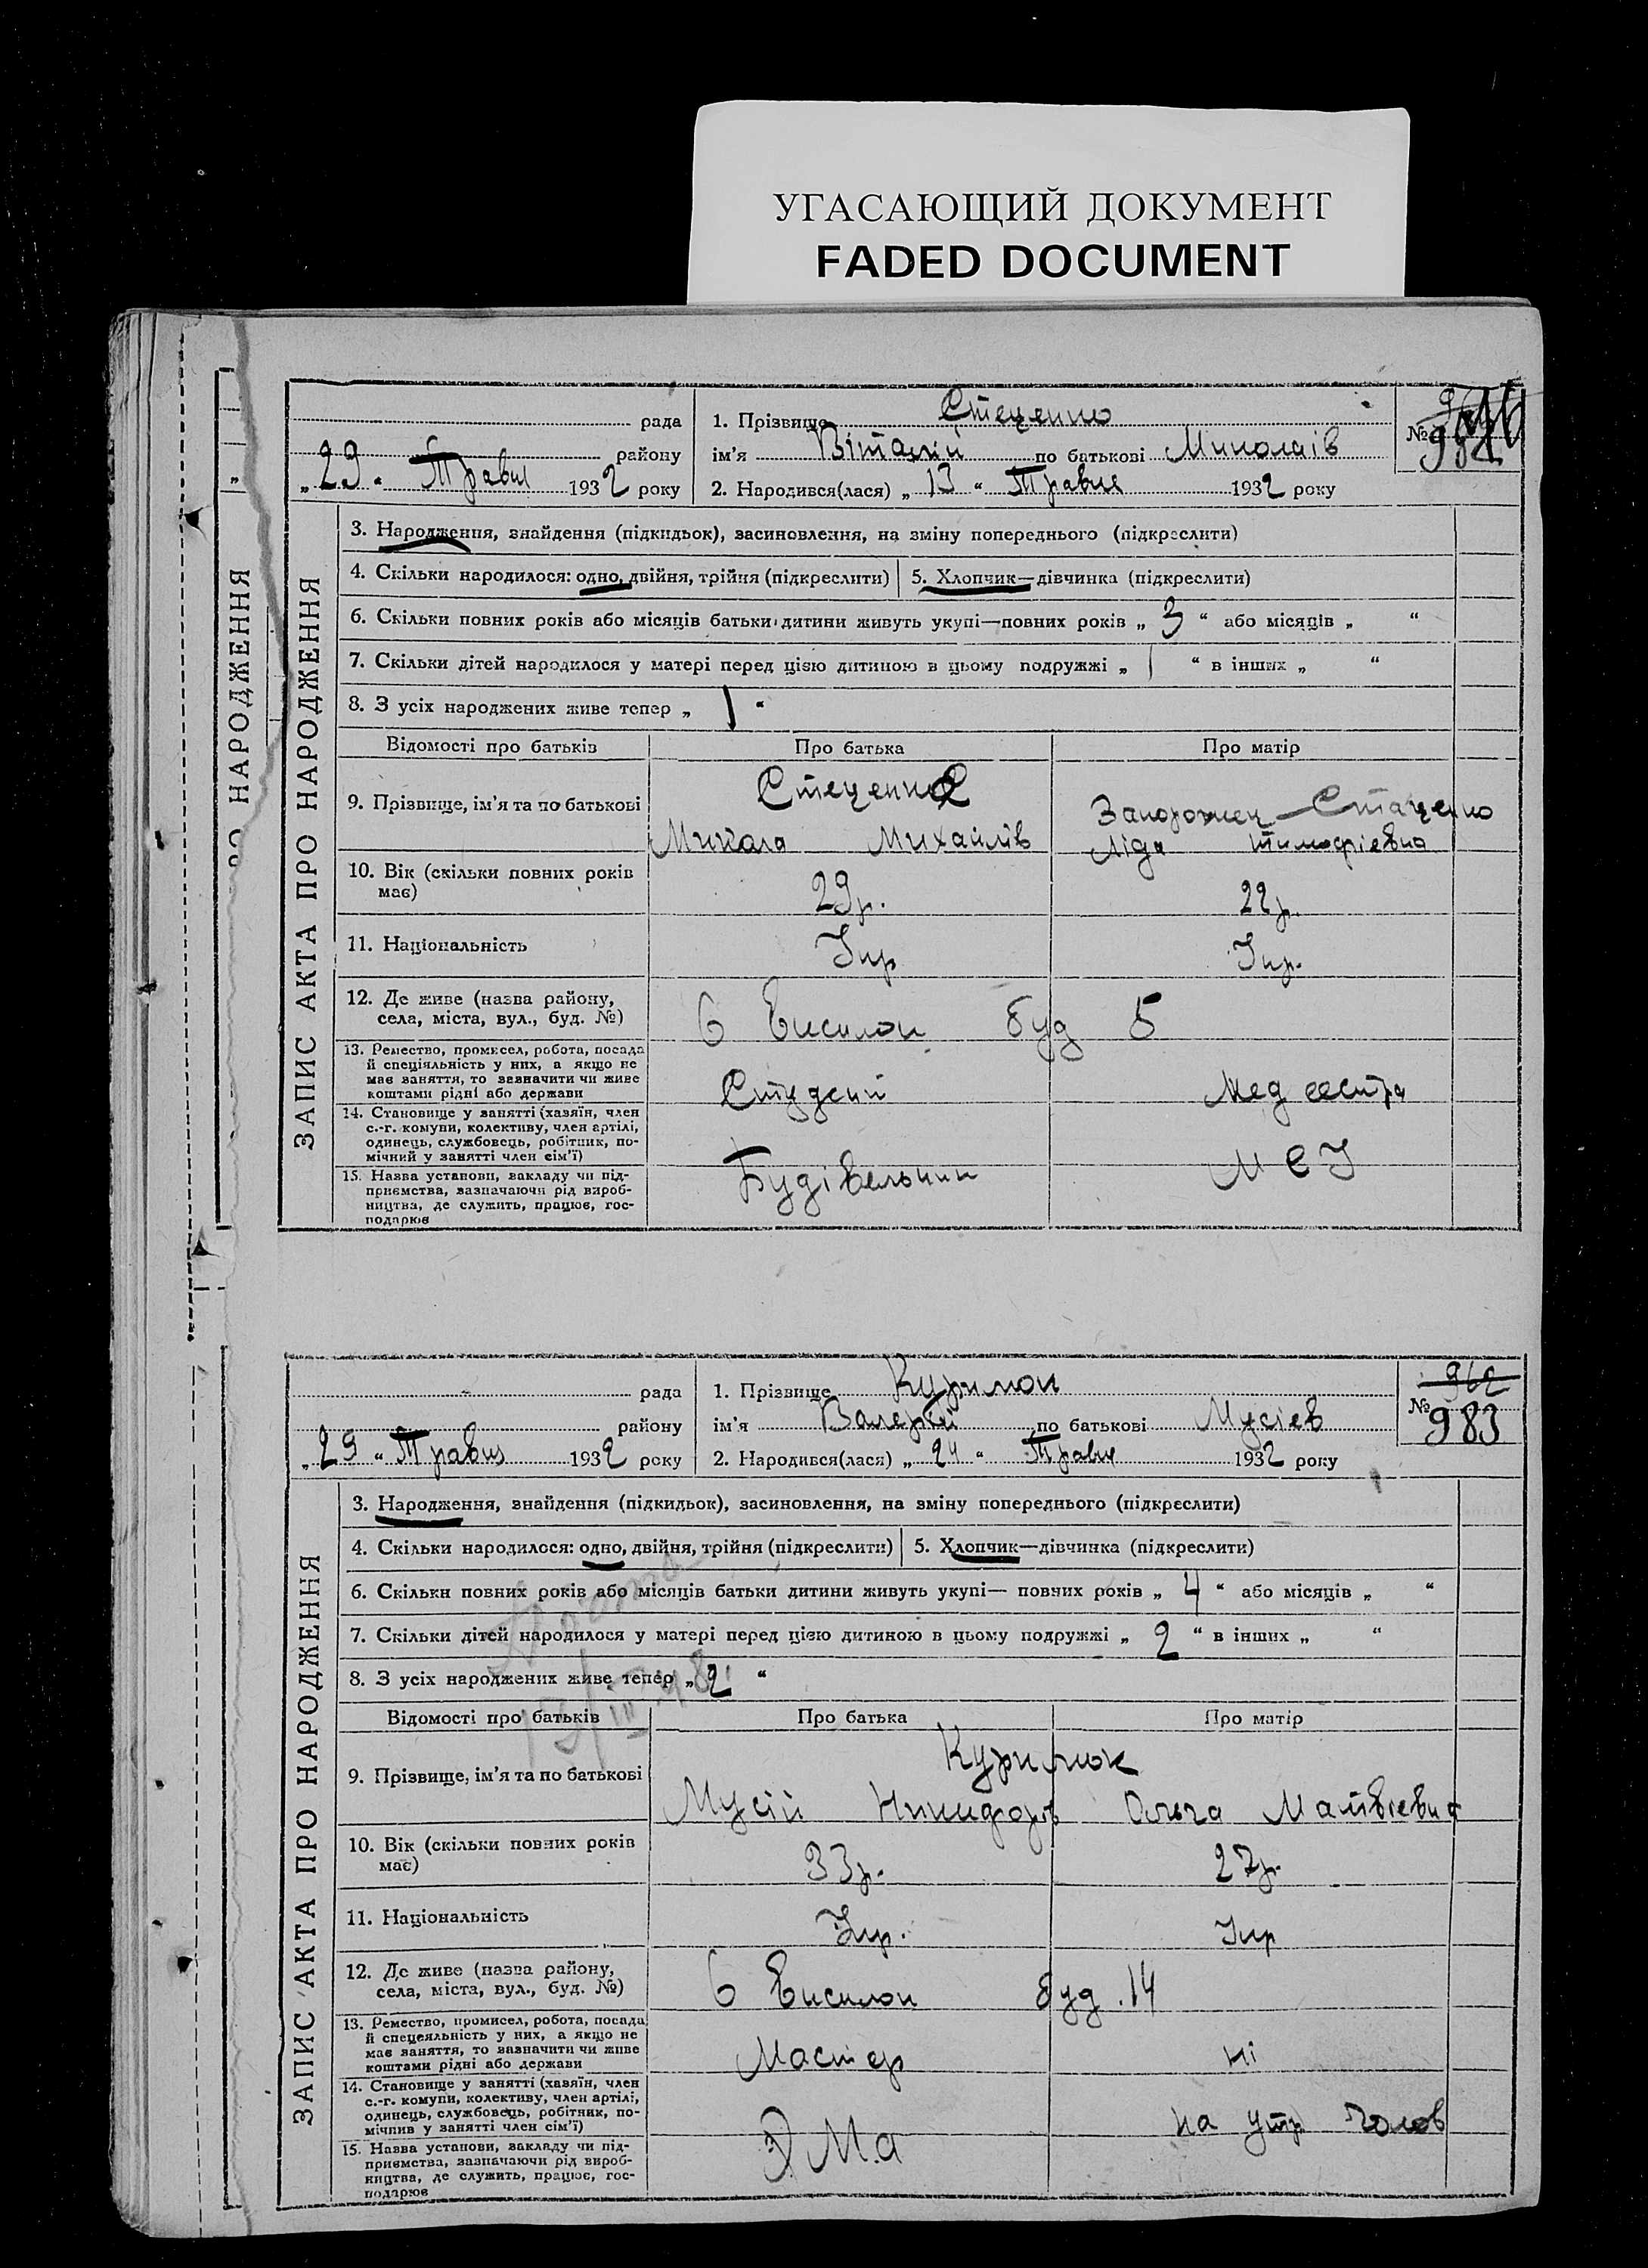 УГАСАЮЩИЙ ДОКУМЕНТ
FADED DOCUMENT
НАРОДЖЕННЯ
ЗАПИС АКТА ПРО НАРОДЖЕННЯ
рада
району
„ 29 “ Травня 1932 року
1. Прізвище Стеценко
ім'я Віталій по батькові Миколаїв
2. Народився(лася) „ 13 “ Травня 1932 року
№
3. Народження, знайдення (підкидьок), засиновлення, на зміну попереднього (підкреслити)
4. Скільки народилося: одно, двійня, трійня (підкреслити) 5. Хлопчик—дівчинка (підкреслити)
6. Скільки повних років або місяців батьки дитини живуть укупі—повних років „ 3 “ або місяців „ “
7. Скільки дітей народилося у матері перед цією дитиною в цьому подружжі „ 1 “ в інших „ “
8. З усіх народжених живе тепер „ 1 “
Відомості про батьків Про батька Про матір
9. Прізвище, ім'я та по батькові
Стеценко
Микола Михайлів
Запорожец-Стаценко
Ліда Тимофіевна
10. Вік (скільки повних років має) 29р. 22р.
11. Національність Укр Укр.
12. Де живе (назва району, села, міста, вул., буд. №)
6 Висилок буд 5
13. Ремество, промисел, робота, посада
й спеціяльність у них, а якщо не
має заняття, то зазначити чи живе
коштами рідні або держави
Студент Мед сестра
14. Становище у занятті (хазяїн, член
с.-г. комуни, колективу, член артілі,
одинець, службовець, робітник, по-
мічний у занятті член сім'ї)
15. Назва установи, закладу чи під-
приємства, зазначаючи рід вироб-
ництва, де служить, працює, гос-
подарює
Будівельник МСІ
ЗАПИС АКТА ПРО НАРОДЖЕННЯ
рада
району
„ 29 “ Травня 1932 року
1. Прізвище Курилюк
ім'я Валерій по батькові Мусіев
2. Народився(лася) „ 24 “ Травня 1932 року
962
№ 983
3. Народження, знайдення (підкидьок), засиновлення, на зміну попереднього (підкреслити)
4. Скільки народилося: одно, двійня, трійня (підкреслити) 5. Хлопчик—дівчинка (підкреслити)
6. Скільки повних років або місяців батьки дитини живуть укупі— повних років „ 4 “ або місяців „ “
7. Скільки дітей народилося у матері перед цією дитиною в цьому подружжі „ 2 “ в інших „ “
8. З усіх народжених живе тепер „ 2 “
Відомості про батьків Про батька Про матір
9. Прізвище, ім'я та по батькові
Курилюк
Мусій Никифорів Ольга Матвіевна
10. Вік (скільки повних років має) 33р. 27р.
11. Національність Укр. Укр
12. Де живе (назва району, села, міста, вул., буд. №)
6 Висилок буд. 14
13. Ремество, промисел, робота, посада
й спецеяльність у них, а якщо не
має заняття, то зазначити чи живе
коштами рідні або держави
Мастер ні
14. Становище у занятті (хазяїн, член
с.-г. комуни, колективу, член артілі,
одинець, службовець, робітник, по-
мічнив у занятті член сім'ї)
на утр чолов
15. Назва установи, закладу чи під-
приємства, зазначаючи рід вироб-
ництва, де служить, працює, гос-
подарює